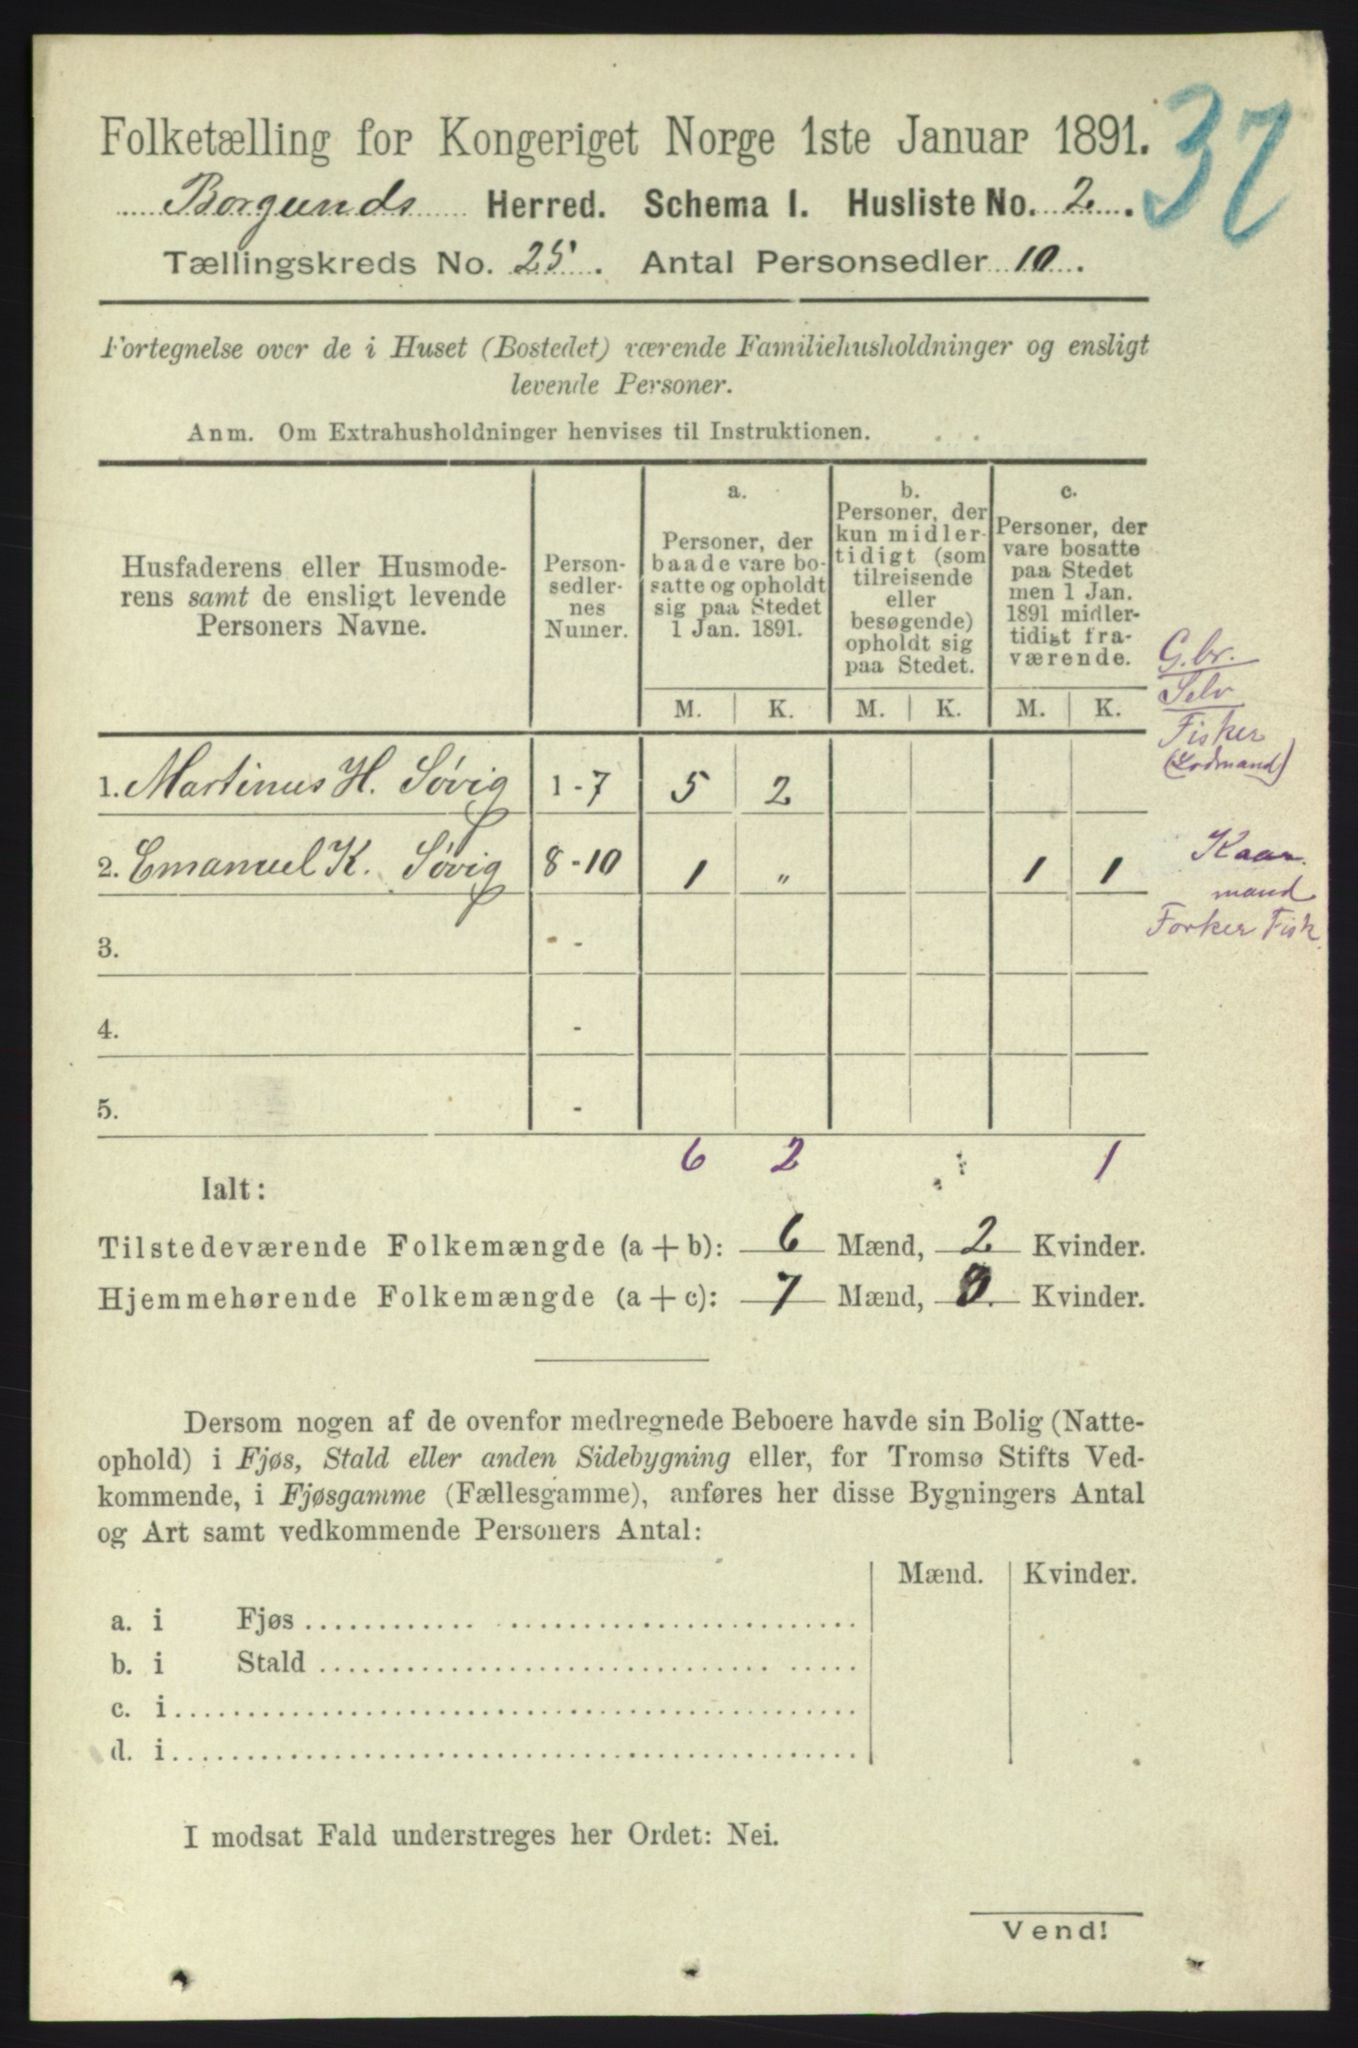 Folketælling for Kongeriget Norge 1ste Januar 1891.
32
Borgunds Herred. Schema I. Husliste No. 2.
Tællingskreds No. 25. Antal Personsedler 10.
Fortegnelse over de i Huset (Bostedet) værende Familiehusholdninger og ensligt
levende Personer.
Anm. Om Extrahusholdninger henvises til Instruktionen.
Husfaderens eller Husmode-
rens samt de ensligt levende
Personers Navne.
Person-
sedler-
nes
Numer.
a.
Personer, der
baade vare bo-
satte og opholdt
sig paa Stedet
1 Jan. 1891.
b.
Personer, der
kun midler-
tidigt (som
tilreisende
eller
besøgende)
opholdt sig
paa Stedet.
c.
Personer, der
vare bosatte
paa Stedet
men 1 Jan.
1891 midler-
tidigt fra-
værende.
M. K. M. K. M. K.
G.br.
Selv
Fisker
(Lodmand)
1. Martinus H. Søvig 1-7 5 2
2. Emanuel K. Søvig 8-10 1 " 1 1
Kaar
mand
Forker Fisk.
3. -
4. -
5. -
6 2 1
Ialt:
Tilstedeværende Folkemængde (a+b): 6 Mænd, 2 Kvinder.
Hjemmehørende Folkemængde (a+c): 7 Mænd, 3 Kvinder.
Dersom nogen af de ovenfor medregnede Beboere havde sin Bolig (Natte-
ophold) i Fjøs, Stald eller anden Sidebygning eller, for Tromsø Stifts Ved-
kommende, i Fjøsgamme (Fællesgamme), anføres her disse Bygningers Antal
og Art samt vedkommende Personers Antal:
Mænd. Kvinder.
a. i Fjøs
b. i Stald
c. i
d. i
I modsat Fald understreges her Ordet: Nei.
Vend!